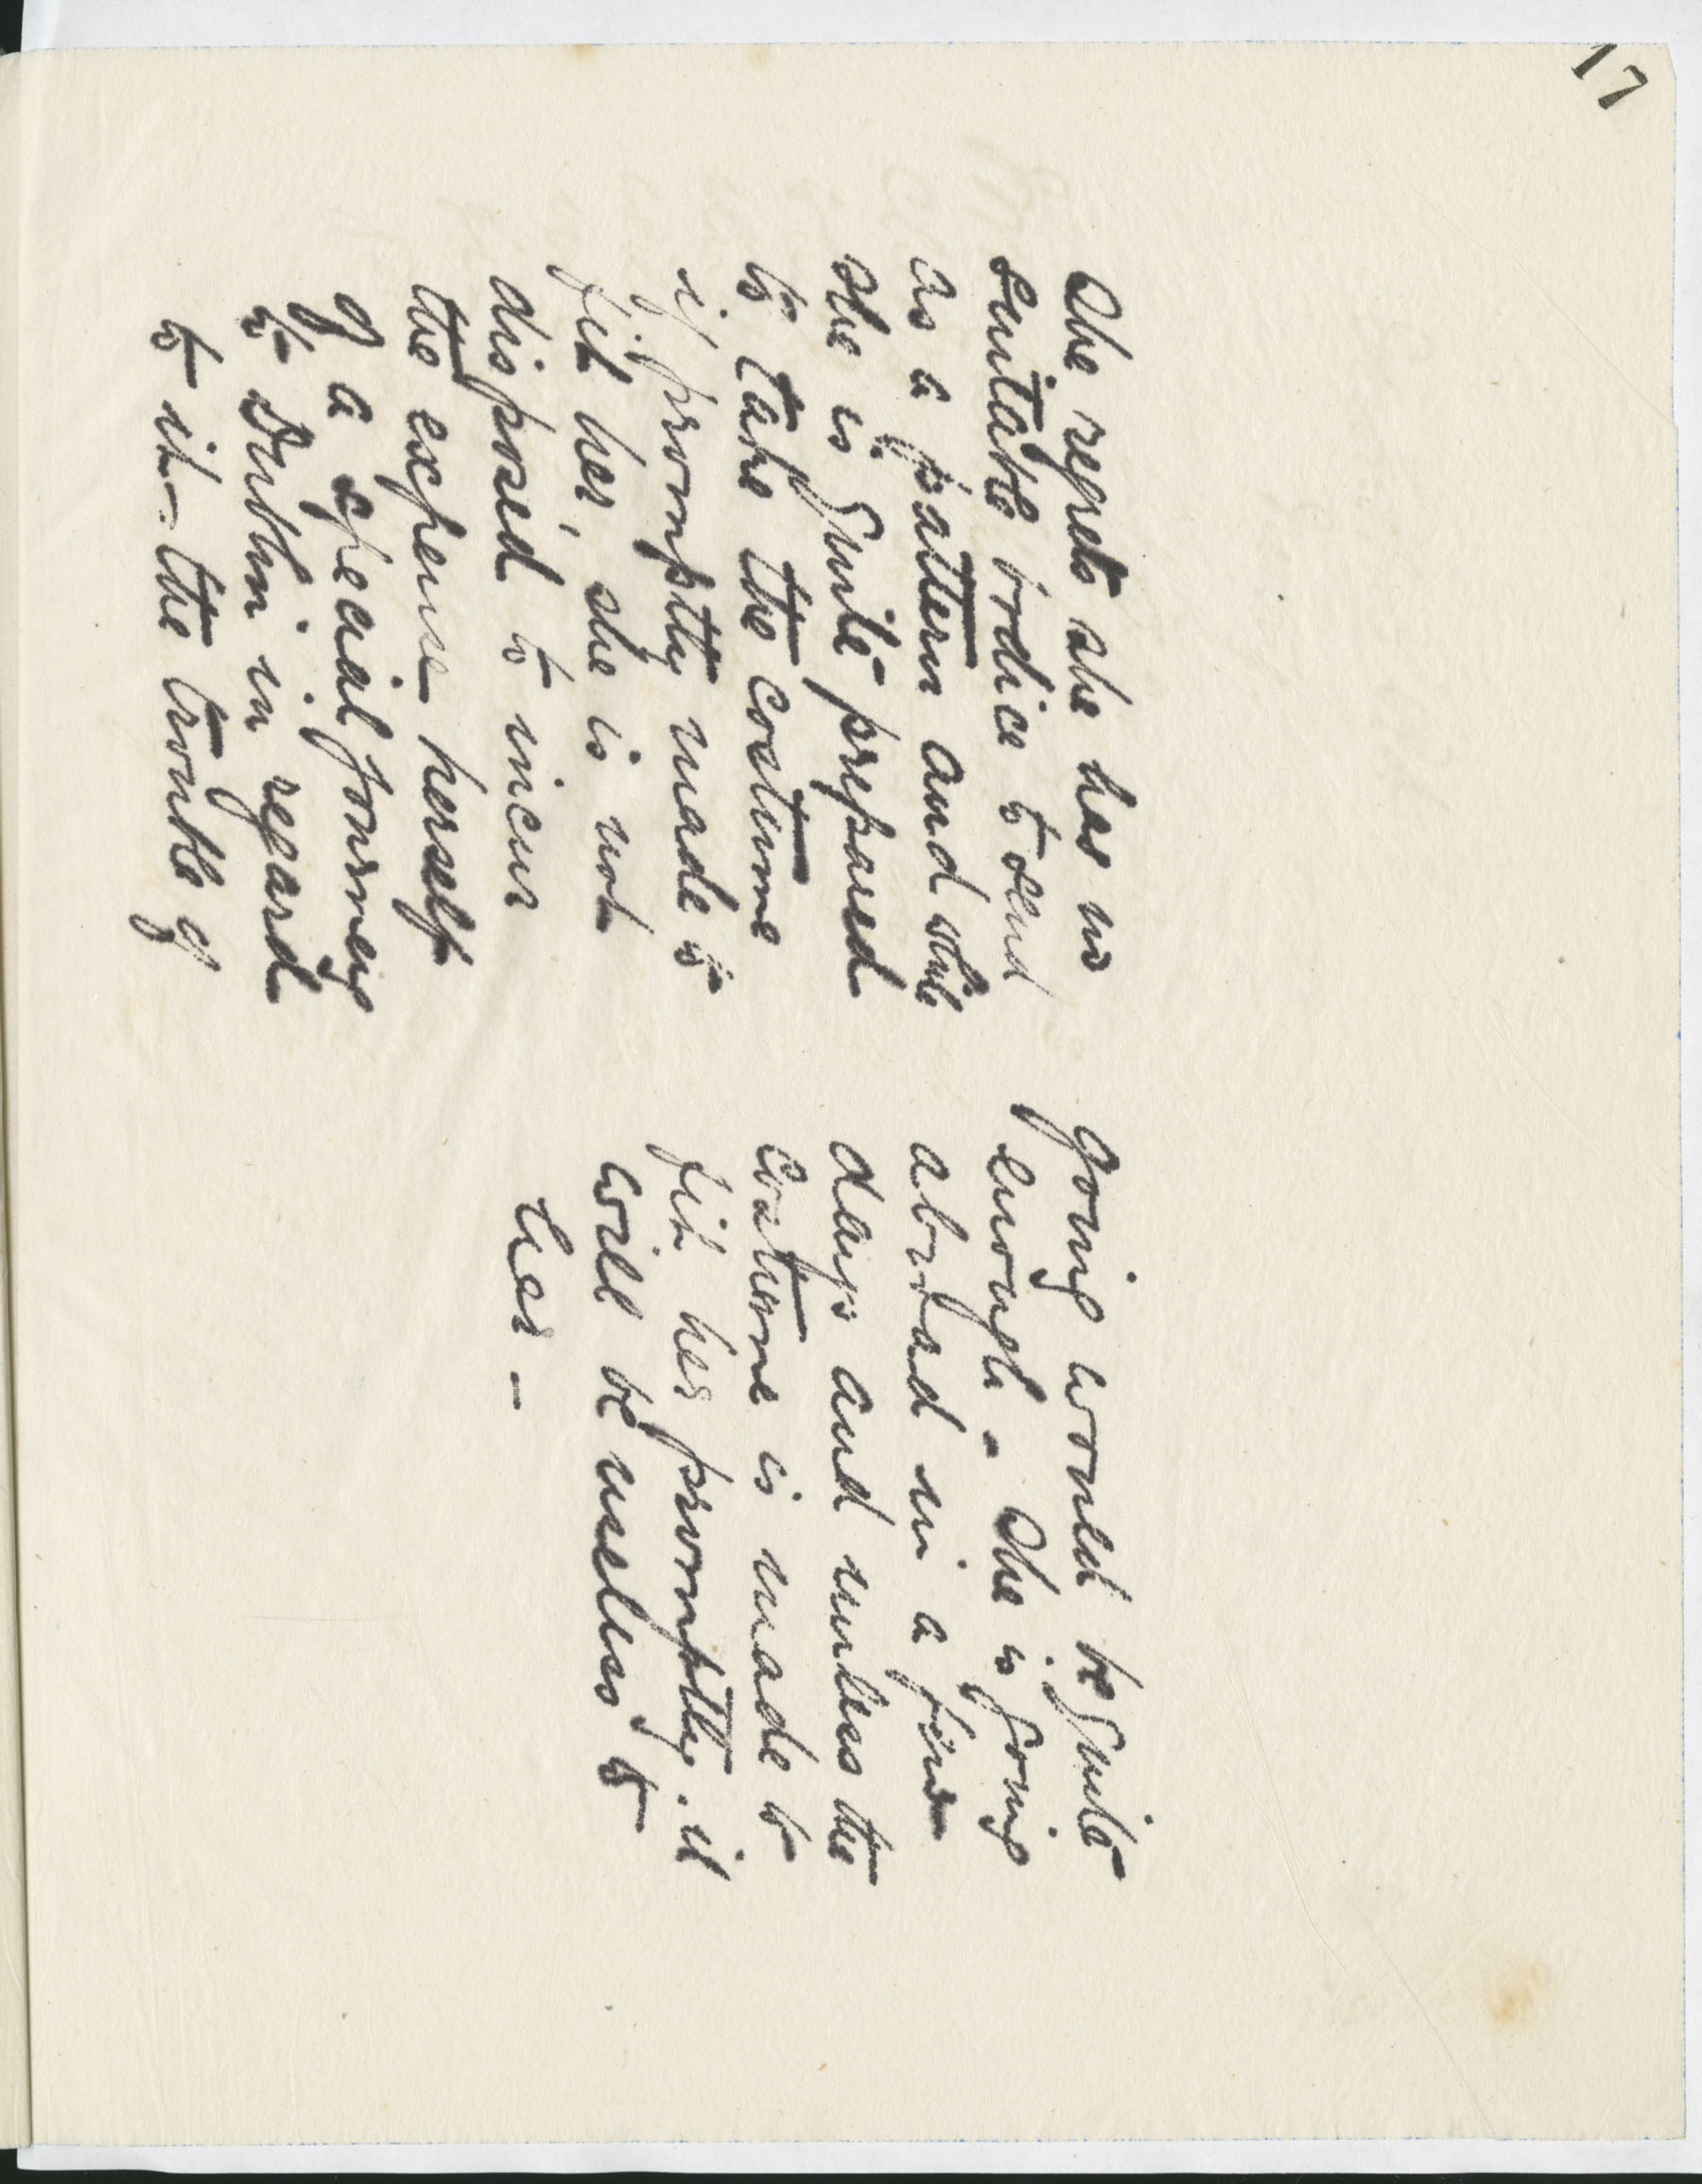 17
She regrets she has no
suitable bodice to send
as a pattern and while
she is quite prepared
to take the costume
if promptly made to
fit her, she is not
disposed to incur
the expense herself
of a special journey
to Dublin in regard
to it – the trouble of
going would be quite
enough – She is going
abroad in a few
days and unless the
costume is made to
fit her promptly. it
will be useless to
her –